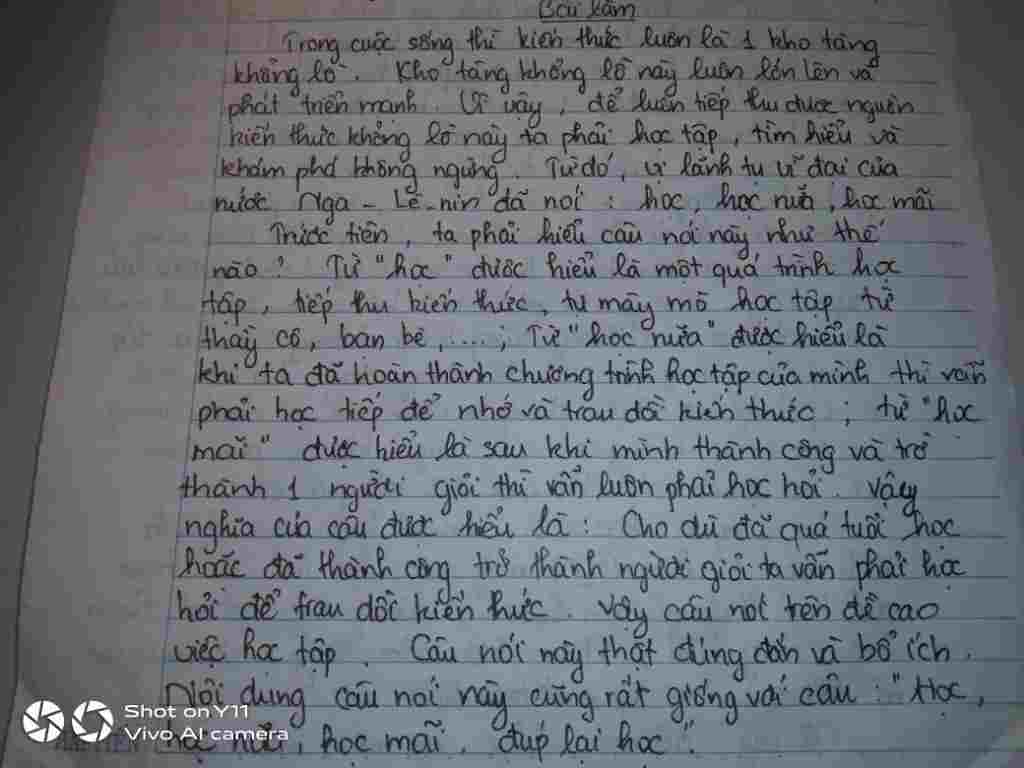 Bài làm
Trong cuộc sống thì kiến thức luôn là 1 kho tàng
khổng lồ. Kho tàng khổng lồ này luôn lớn lên và
phát triển mạnh. Vì vậy, để luôn tiếp thu được nguồn
kiến thức khổng lồ này ta phải học tập, tìm hiểu và
khám phá không ngừng. Từ đó, vị lãnh tụ vĩ đại của
nước Nga - Lê-nin đã nói : học, học nữa, học mãi
Trước tiên, ta phải hiểu câu nói này như thế
nào? Từ "học" được hiểu là một quá trình học
tập, tiếp thu kiến thức, tự mày mò học tập từ
thầy cô, bạn bè,....; Từ "học nữa" được hiểu là
khi ta đã hoàn thành chương trình học tập của mình thì vẫn
phải học tiếp để nhớ và trau dồi kiến thức ; từ "học
mãi" được hiểu là sau khi mình thành công và trở
thành 1 người giỏi thì vẫn luôn phải học hỏi. Vậy
nghĩa của câu được hiểu là : Cho dù đã quá tuổi học
hoặc đã thành công trở thành người giỏi ta vẫn phải học
hỏi để trau dồi kiến thức. Vậy câu nói trên đề cao
việc học tập. Câu nói này thật đúng đắn và bổ ích.
Nội dung câu nói này cũng rất giống với câu : "Học,
học nữa, học mãi, đúp lại học".
Shot on Y11
Vivo AI camera